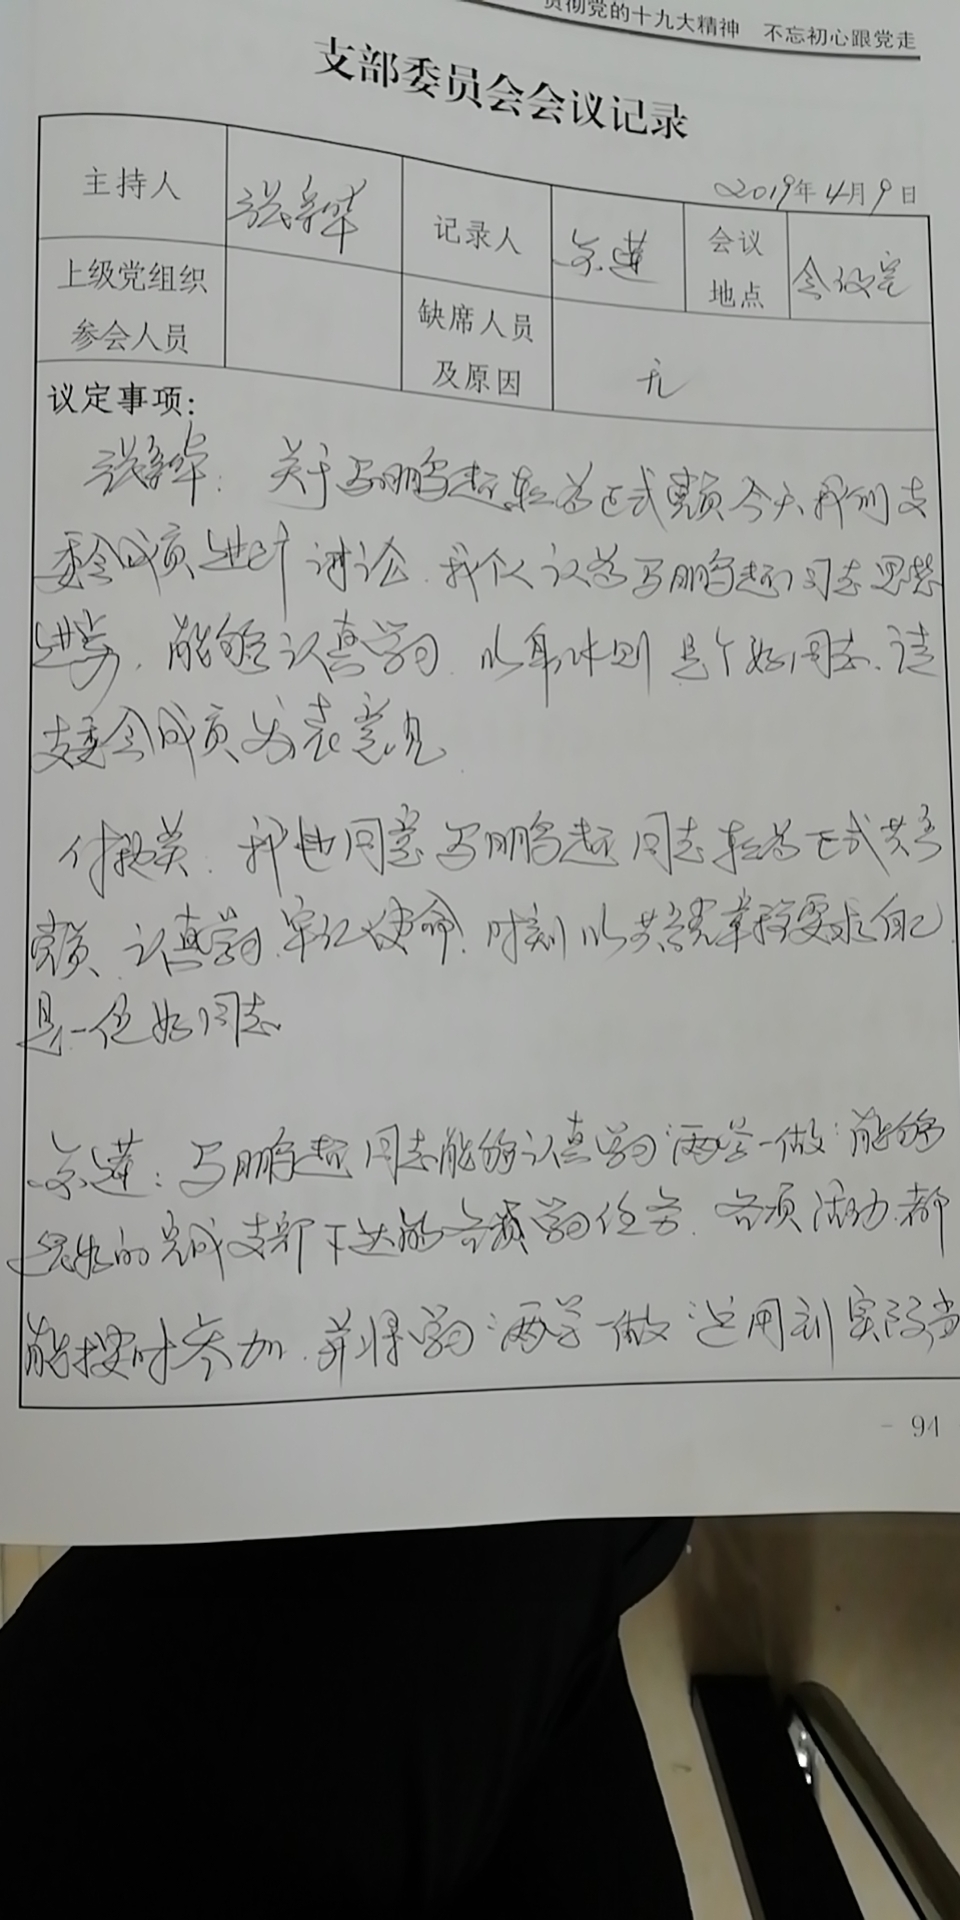 贯彻党的十九大精神 不忘初心跟党走
支部委员会会议记录
2019年4月9日
主持人 张新华 记录人 莲 会议地点 会议室
上级党组织参会人员 缺席人员及原因 无
议定事项:
张新华: 关于马鹏超转为正式党员今天我们支
委会成员进行讨论.我个人认为马鹏超同志思想
进步,能够认真学习.以身作则 是个好同志.请
支委会成员发表意见
付艳英: 我也同意马鹏超同志转为正式共产
党员、认真学习.牢记使命.时刻以共产党章程要求自己.
是一位好同志.
莲: 马鹏超同志能够认真学习“两学一做”能够
很好的完成支部下达的各项学习任务.各项活动.都
能按时参加.并将学习“两学一做”运用到实际当
- 94